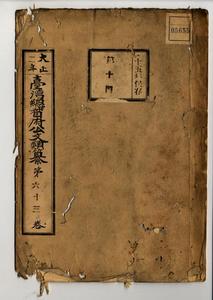 大正二年
臺灣總督府公文類纂
第六十三卷
十五年保存
第十門
05655